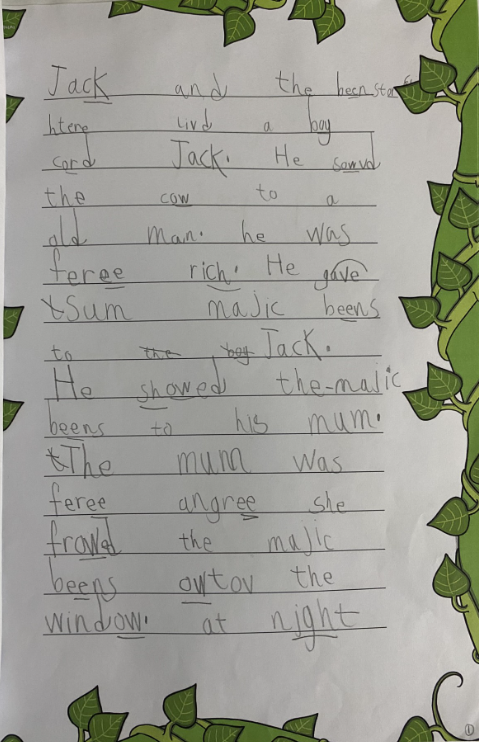 Jack and the beenstork
htere livd a boy
cord Jack. He sowd
the cow to a
old man. he was
feree rich. He gave
Sum majic beens
to the boy Jack.
He showed the majic
beens to his mum.
The mum was
feree angree she
frowd the majic
beens owtov the
window. at night
1